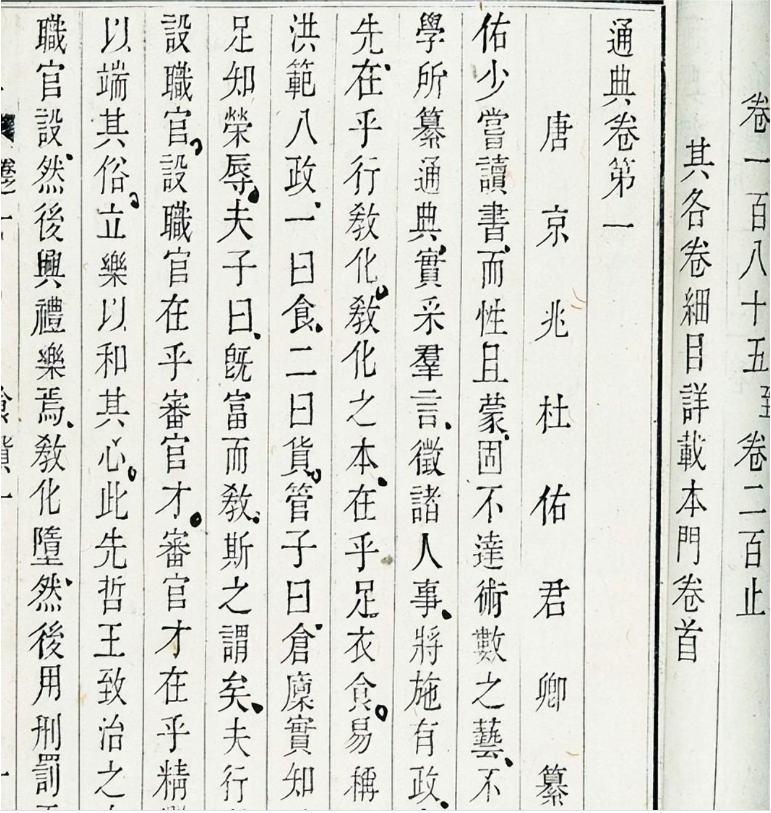 卷一百八十五至卷二百止
其各卷細目詳載本門卷首
通典卷第一
唐京兆杜佑君卿纂
佑少嘗讀書、而性且蒙、固不達術數之藝、不
學所纂通典、實采羣言、徵諸人事、將施有政、
先在乎行教化。教化之本、在乎足衣食。易稱
洪範八政、一曰食、二曰貨。管子曰、倉廩實知
足知榮辱。夫子曰、既富而教、斯之謂矣、夫行
設職官。設職官在乎審官才。審官才在乎精
以端其俗。立樂以和其心。此先哲王致治之
職官設、然後興禮樂焉、教化墮、然後用刑罰
食貨一